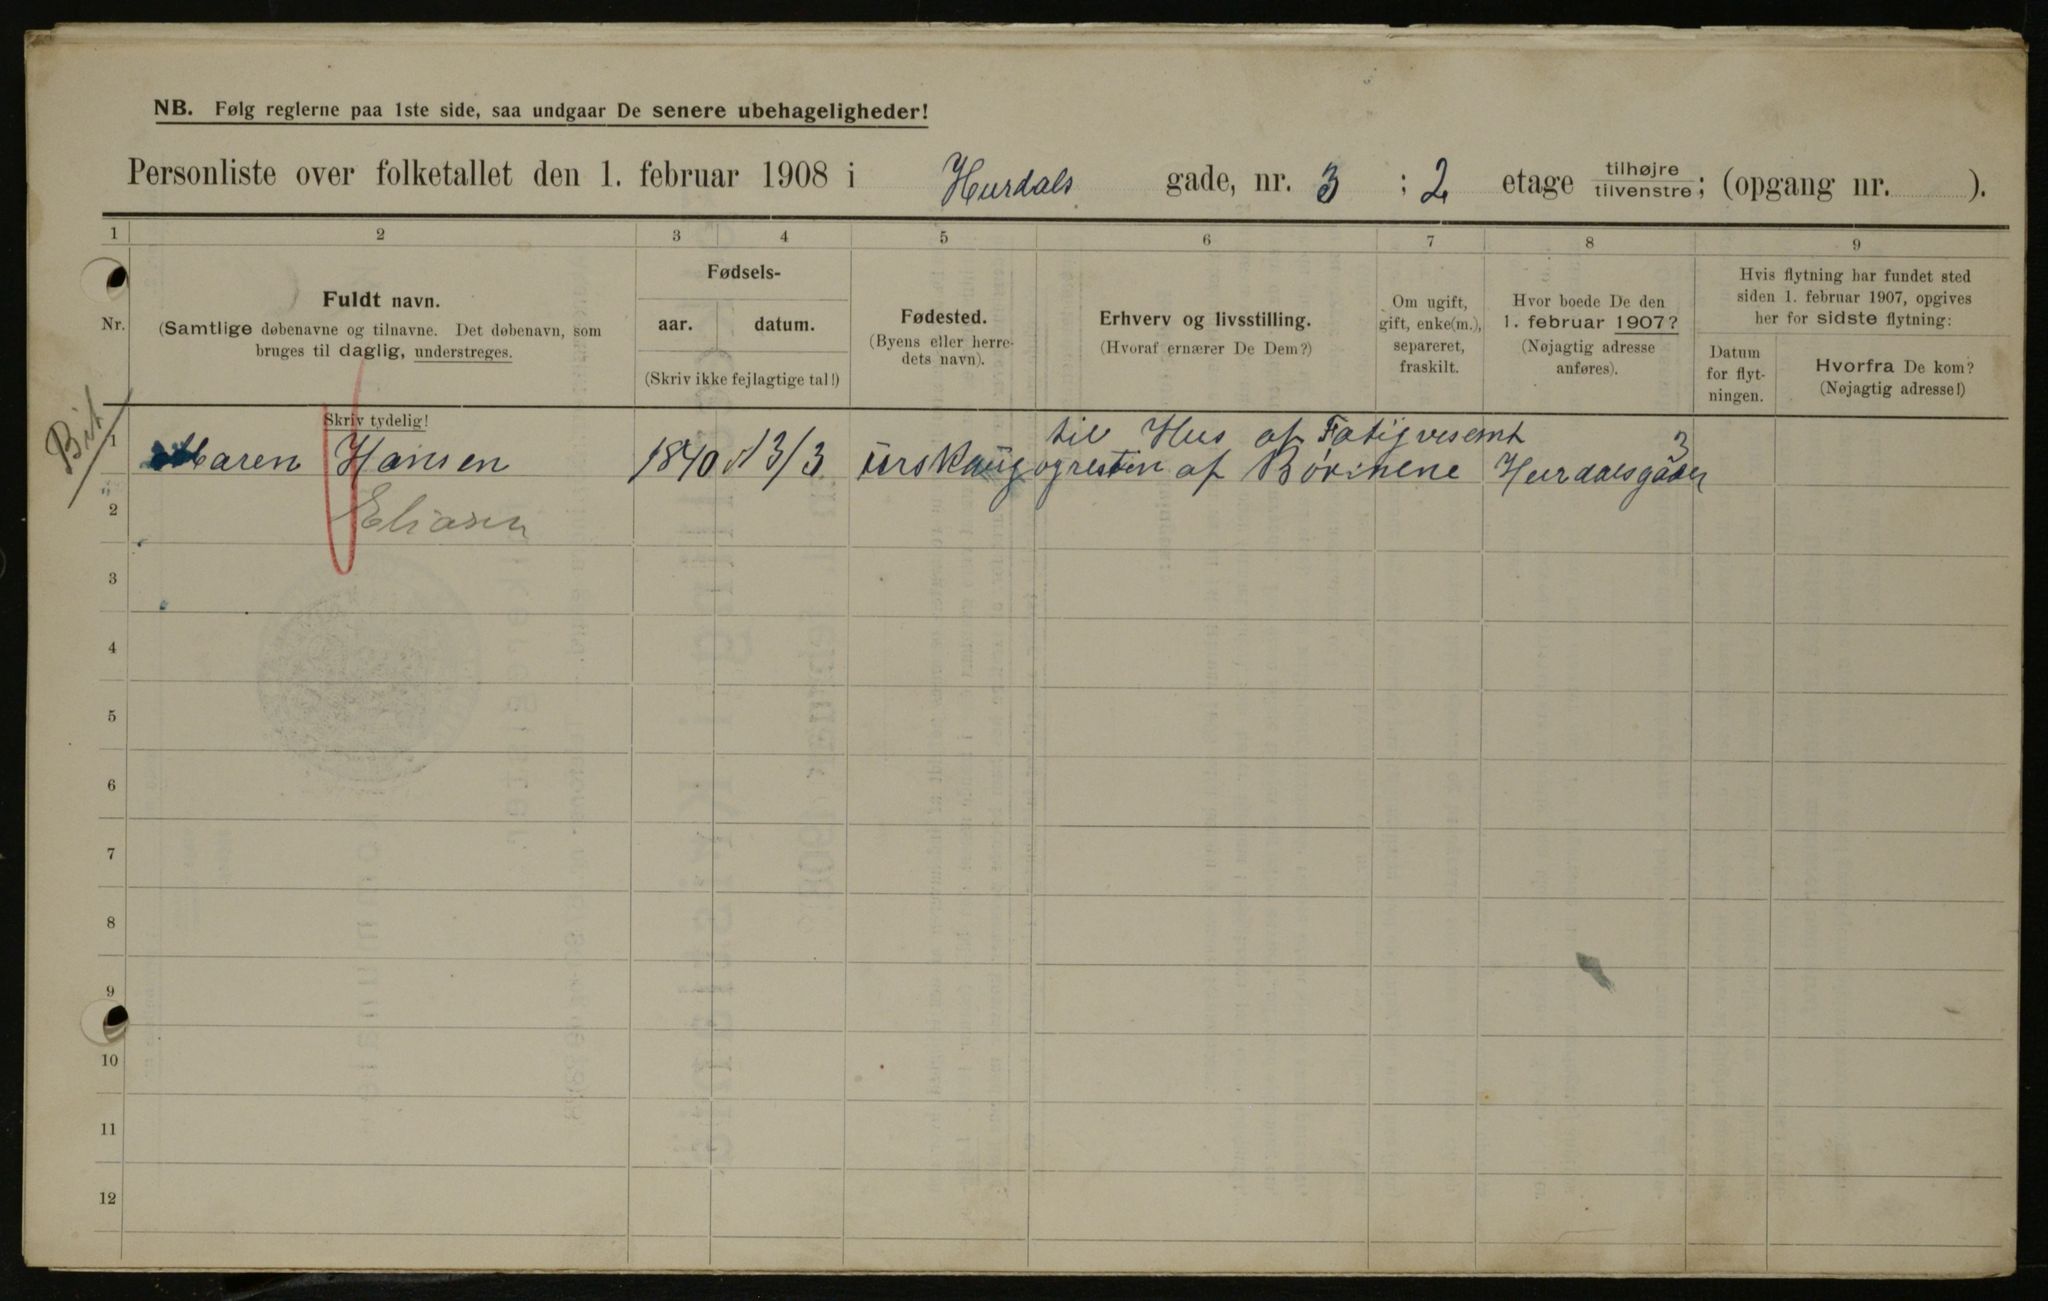 NB. Følg reglerne paa 1ste side, saa undgaar De senere ubehageligheder!
Personliste over folketallet den 1. februar 1908 i Hurdals gade, nr. 3 ; 2 etage tilhøjre tilvenstre; (opgang nr. ).
1 2 3 4 5 6 7 8 9
Nr.
Fuldt navn.
(Samtlige døbenavne og tilnavne. Det døbenavn, som
bruges til daglig, understreges.
Skriv tydelig!
Fødsels-
aar. datum.
(Skriv ikke fejlagtige tal!)
Fødested.
(Byens eller herre-
dets navn).
Erhverv og livsstilling.
(Hvoraf ernærer De Dem?)
Om ugift,
gift, enke(m.),
separeret,
fraskilt.
Hvor boede De den
1. februar 1907?
(Nøjagtig adresse
anføres).
Hvis flytning har fundet sted
siden 1. februar 1907, opgives
her for sidste flytning:
Datum
for flyt-
ningen.
Hvorfra De kom?
(Nøjagtig adresse!)
til Hus af Fatigvesemt 3
1 Maren Hansen 1840 13/3 urskaug ogresten af Børnene Hurdalsgaden
2 Eliasen
3
4
5
6
7
8
9
10
11
12